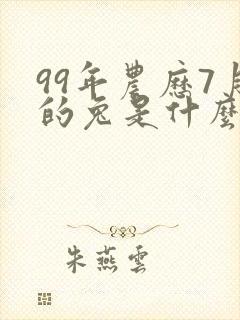 99年農歷7月
的兔是什麼
朱燕雲